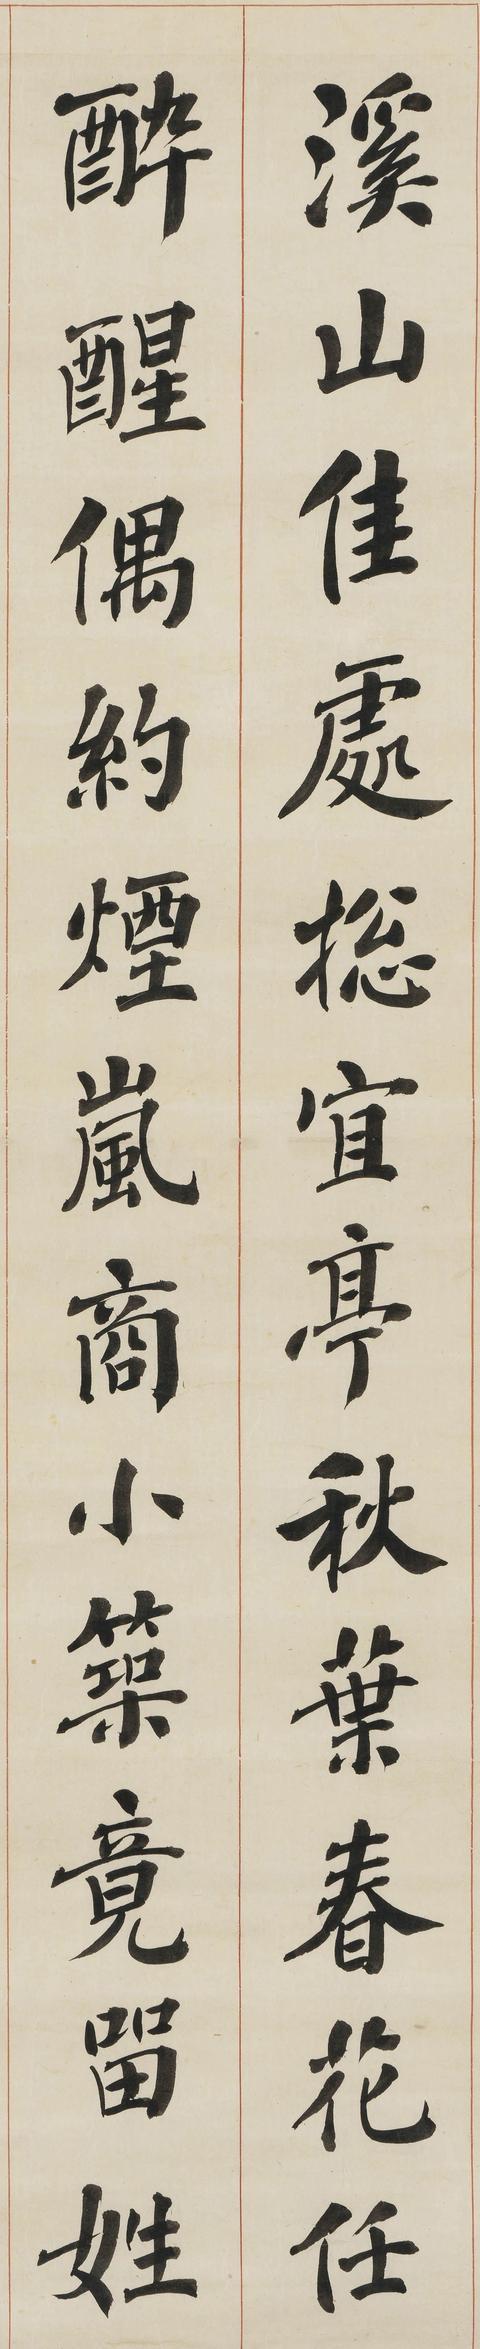 溪山佳處總宜亭秋葉春花任
醉醒偶約煙嵐商小築竟留姓